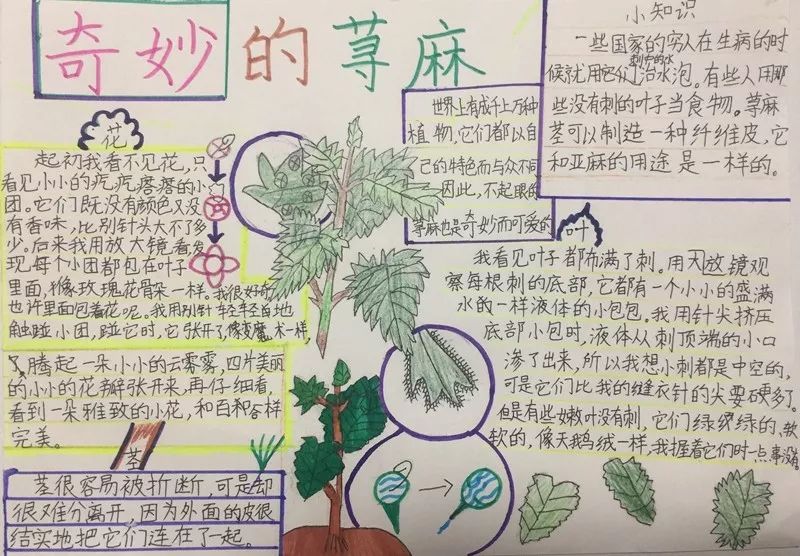 奇妙的荨麻
小知识
一些国家的穷人在生病的时
候就用它们刺中的水治水泡。有些人用那
些没有刺的叶子当食物。荨麻
茎可以制造一种纤维皮,它
和亚麻的用途是一样的。
世界上有成千上万种
植物,它们都以自
己的特色而与众不同
因此,不起眼的
荨麻也是奇妙而可爱的
花
起初我看不见花,只
看见小小的疙疙瘩瘩的小
团。它们既没有颜色又没
有香味,比别针头大不了多
少。后来我用放大镜看发
现每个小团都包在叶子
里面,像玫瑰花骨朵一样。我很好奇
也许里面包着花呢。我用别针轻轻地
触碰小团,碰它时,它张开了像变魔术一样
腾起一朵小小的云雾雾,四片美丽
的小小的花瓣张开来,再仔细看,
看到一朵雅致的小花,和百合花一样
完美。
茎
茎很容易被折断,可是却
很难分离开,因为外面的皮很
结实地把它们连在了一起。
叶
我看见叶子都布满了刺。用放大镜观
察每根刺的底部,它都有一个小小的盛满
水的一样液体的小包包。我用针尖挤压
底部小包时,液体从刺顶端的小口
渗了出来,所以我想小刺都是中空的,
可是它们比我的缝衣针的尖要硬多了。
但是有些嫩叶没有刺,它们绿绿的、软
软的,像天鹅绒一样,我握着它们时一点事没有